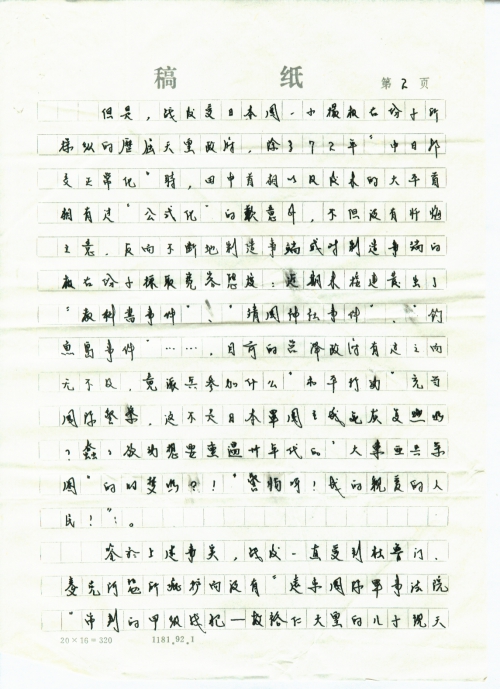 稿 纸
第 2 页
但是，战后受日本国一小撮极右份子所
操纵的历届天皇政府，除了72年“中日邦
交正常化”时，田中首相以及后来的大平首
相有过“公式化”的歉意外，不但没有
之意，反而不断地制造事端或对制造事端的
极右份子採取宽容态度：近期来接连发生了
“教科書事件”、“靖国神社事件”、“钓
鱼島事件”……，目前的政府有过之而
无不及，竟派兵参加什么“和平行动”充当
国际警察，这不是日本軍国主义死灰复燃吗
？欲为想要重温卅年代的“大東亜共荣
圈”的吗？！“警惕呀！我的親爱的人
民！”：。
鉴於上述事实，战后一直受到杜鲁门、
麦克阿瑟所庇护而没有“远东国际軍事法院
”审判的甲级战犯—裕仁天皇的儿子现天
20×16=320 1181.92.1